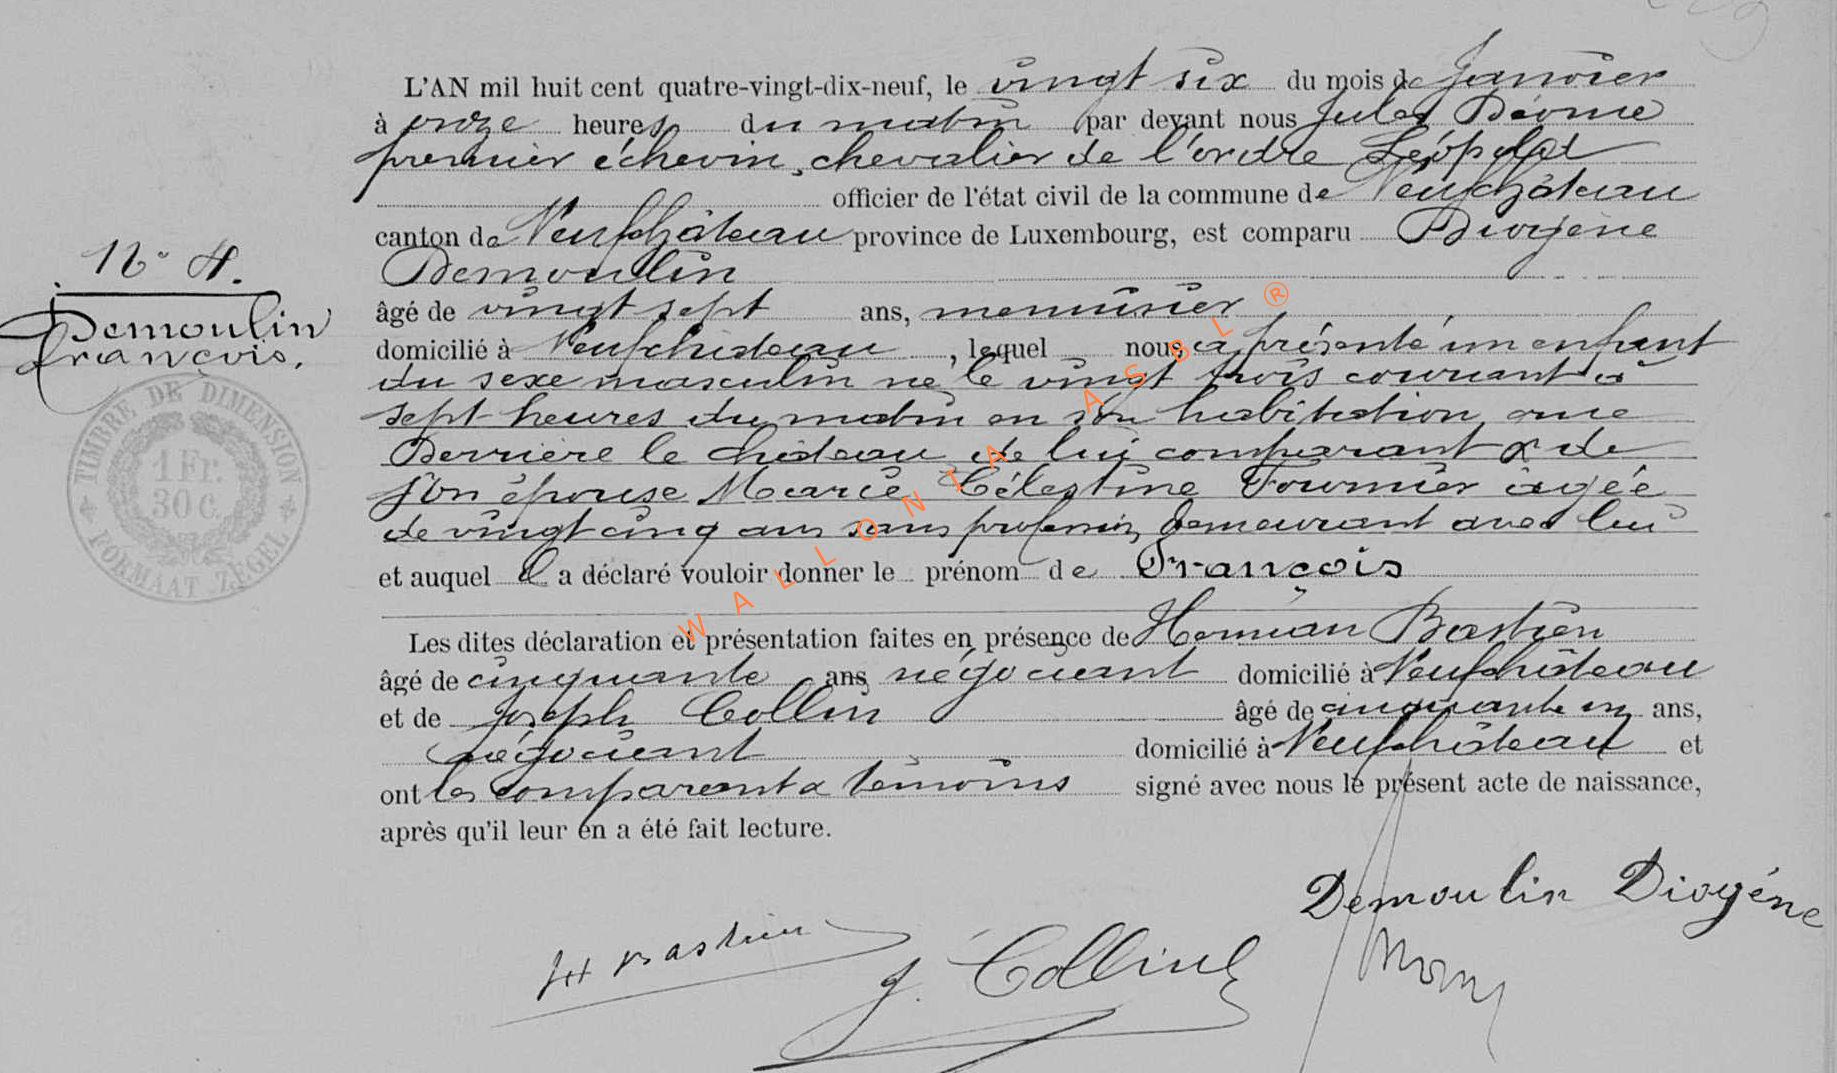 L'AN mil huit cent quatre-vingt-dix-neuf, le vingt six du mois de Janvier
à onze heures du matin par devant nous Jules
premier échevin, chevalier de l'ordre Léopold
officier de l'état civil de la commune de Neufchâteau
canton de Neufchâteau province de Luxembourg, est comparu Diogène
Demoulin
N° 4.
Demoulin
François.
âgé de vingt sept ans, menuisier
domicilié à Neufchâteau, lequel nous a présenté un enfant
du sexe masculin né le vingt trois courant à
sept heures du matin en son habitation rue
Derrière le château de lui comparant & de
son épouse Marie Célestine Fournier âgée
de vingt cinq ans sans profession, demeurant avec lui
et auquel il a déclaré vouloir donner le prénom de François
Les dites déclaration et présentation faites en présence de Herman Bastien
âgé de cinquante ans négociant domicilié à Neufchâteau
et de Joseph Collin âgé de cinquante un ans,
négociant domicilié à Neufchâteau et
ont les comparant & témoins signé avec nous le présent acte de naissance,
après qu'il leur en a été fait lecture.
TIMBRE DE DIMENSION
1 Fr.
30 C.
FORMAAT ZEGEL
WALLONIA ASBL ®
Demoulin Diogène
H Bastien
J. Collin